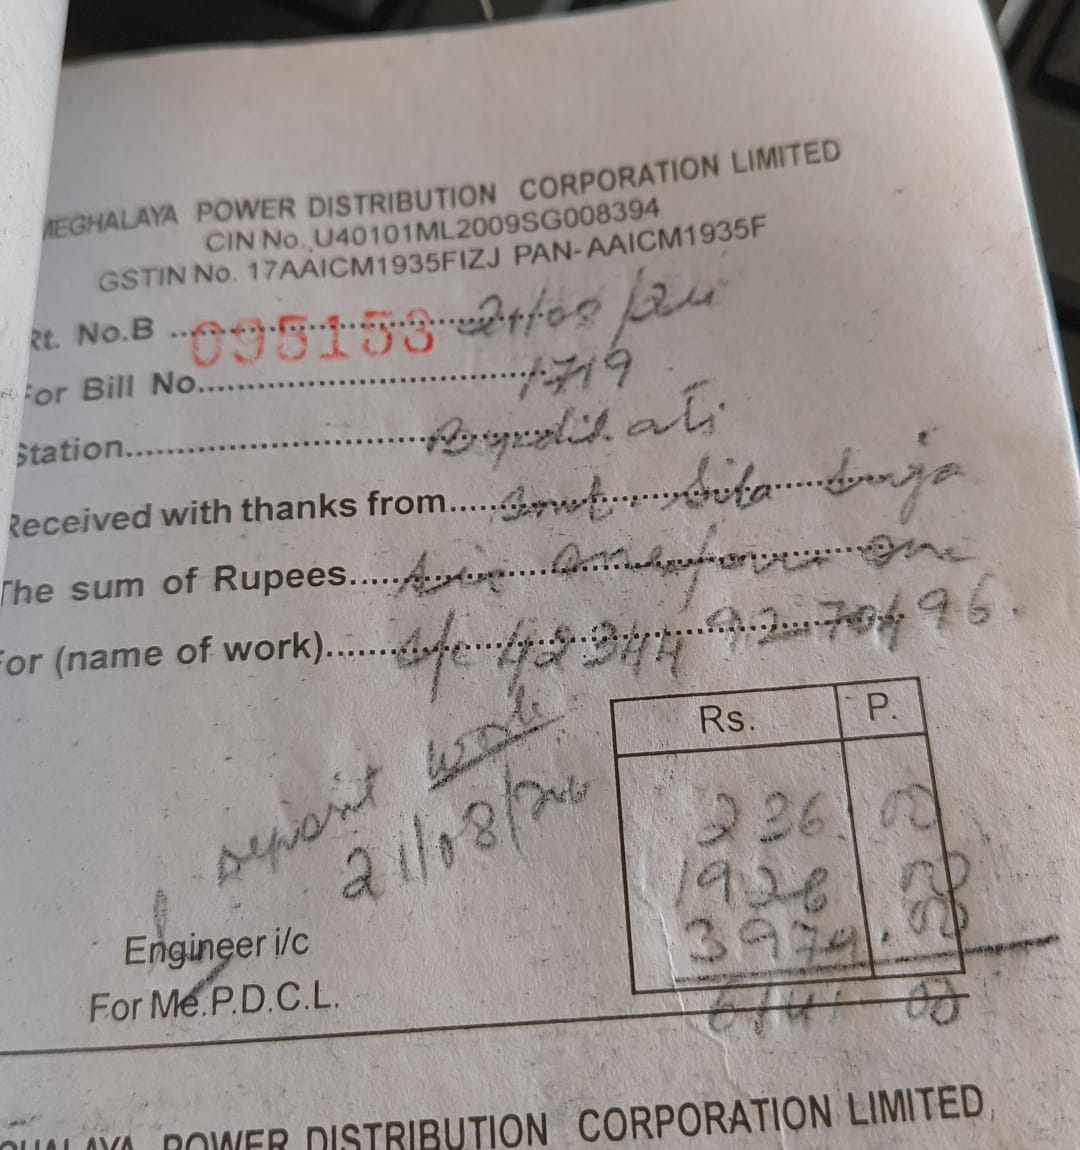 MEGHALAYA POWER DISTRIBUTION CORPORATION LIMITED
CIN No. U40101ML2009SG008394
GSTIN No. 17AAICM1935FIZJ PAN-AAICM1935F
Rt. No.B 095153 21/08/
For Bill No. 1719
Station
Received with thanks from Smt. Sita
The sum of Rupees One four one
For (name of work) A/c 42344 92 70496.
Rs. P.
Deposit work
21/08/
236. 00
1928 00
3974. 00
6141 00
Engineer i/c
For Me.P.D.C.L.
POWER DISTRIBUTION CORPORATION LIMITED